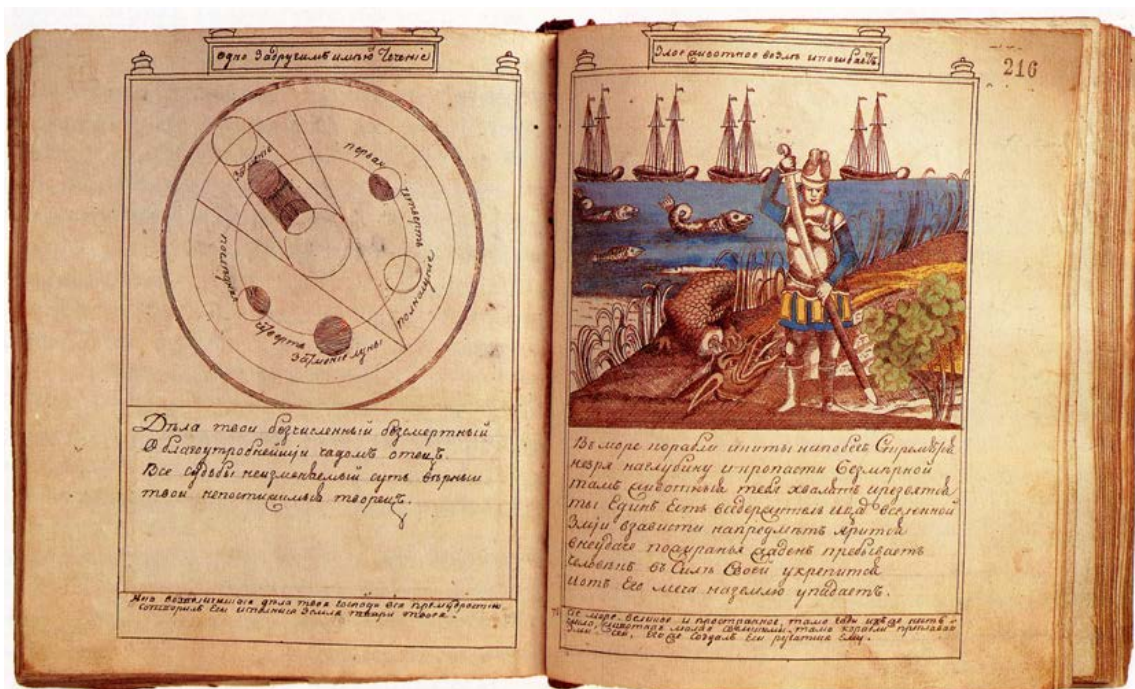 Едно задругимъ имѣю теченіе
первая
четверть
полнолуніе
затменіе луны
четверть
Дѣла твои безчисленный безсмертный
О благоутробнейшіи чадомъ отецъ.
Все судьбы неизменяемый суть вѣрныи
твои непостижимыя творецъ.
возвеличишася дѣла твоя Господи вся премудростію
сотворилъ Еси исполнися Земля твари твоея.
Злое животное ипогибаетъ
216
Въ море корабли
наглубину и пропасти безмѣрной
тамъ животныя тебя хвалятъ
ты Единъ Есть вседержитель вселенной
Зміи взависти напредметъ ярится
внеудаче пожиранья гладенъ пребываетъ
Человекъ въ Силѣ Своей укрепится
Иотъ Его меча наземлю упадаетъ.
море великое и пространное, тамо гади ихже нестъ
числа, животная малая свеликими, тамо корабли преплаваю
Зміи Сей, Егоже создалъ Еси ругатися Ему.